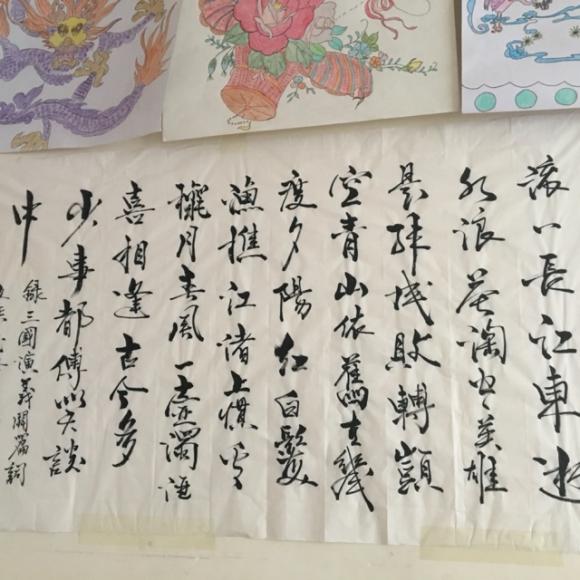 滚〻長江東逝
水浪花淘盡英雄
是非成敗轉頭
空青山依舊在幾
度夕陽紅白髮
漁樵江渚上慣看
龝月春風一壺濁酒
喜相逢古今多
少事都傅笑談
中
錄三國演義開篇詞